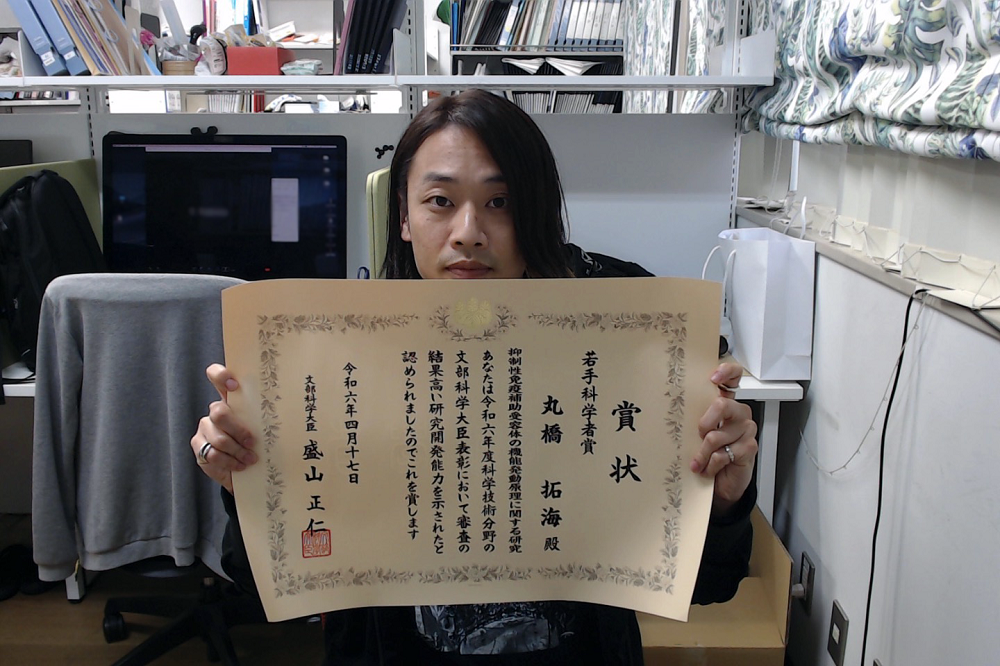 賞状
若手科学者賞
丸橋 拓海 殿
抑制性免疫補助受容体の機能発動原理に関する研究
あなたは令和六年度科学技術分野の
文部科学大臣表彰において審査の
結果高い研究開発能力を示されたと
認められましたのでこれを賞します
令和六年四月十七日
文部科学大臣 盛山 正仁